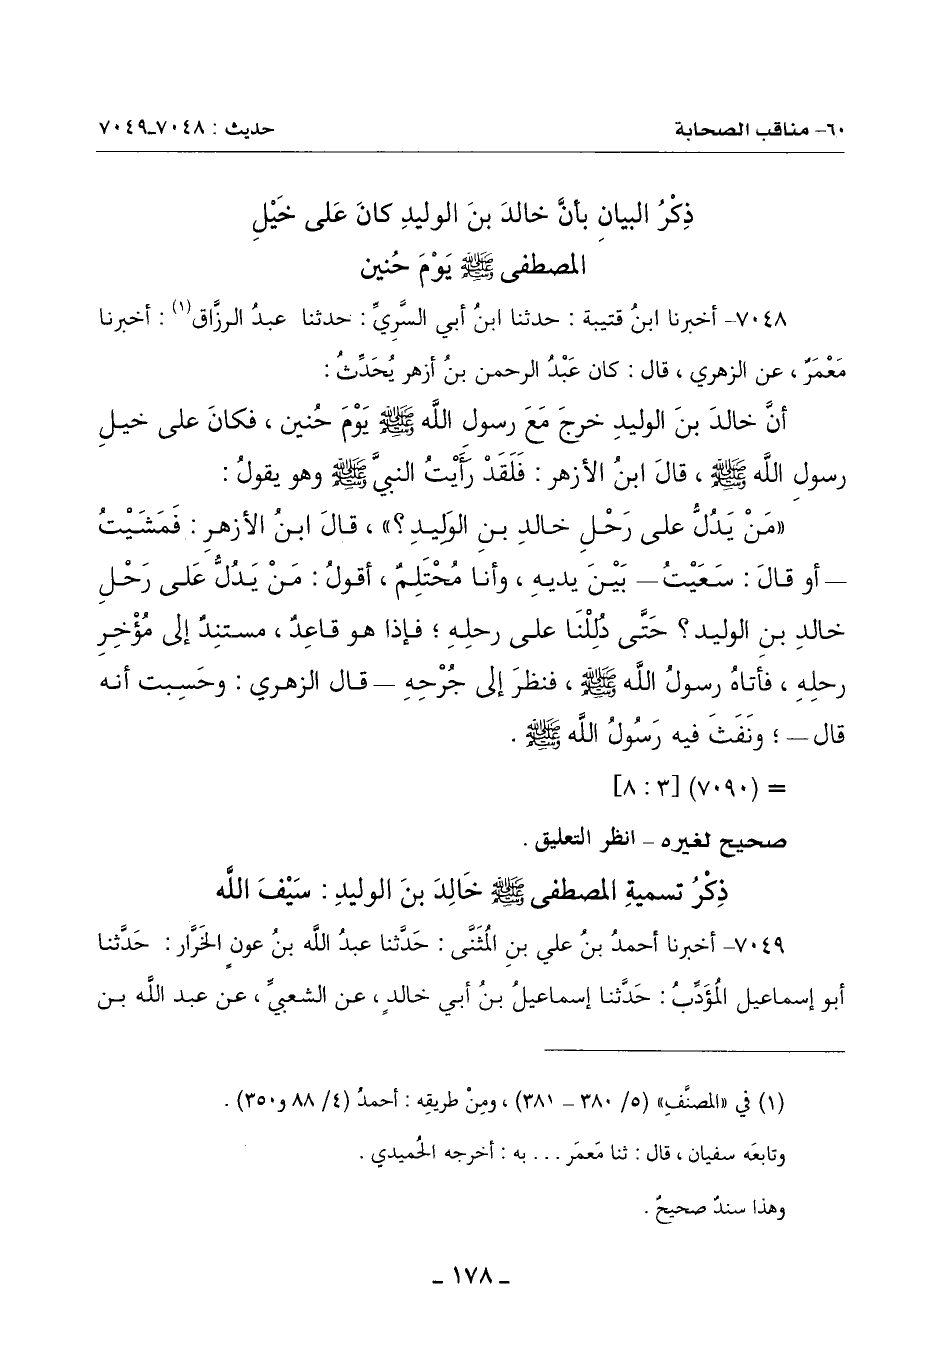 ٦٠- مناقب الصحابة حديث : ٧٠٤٨-٧٠٤٩
ذِكْرُ البيانِ بأنَّ خالدَ بنَ الوليدِ كانَ عَلى خَيْلِ
المصطفى ﷺ يَوْمَ حُنين
٧٠٤٨- أخبرنا ابنُ قتيبة : حدثنا ابنُ أبي السَّرِيِّ : حدثنا عبدُ الرزَّاق(١) : أخبرنا
مَعْمَرٌ ، عن الزهري ، قال : كان عَبْدُ الرحمن بنُ أزهر يُحَدِّثُ :
أنَّ خالدَ بنَ الوليدِ خرجَ مَعَ رسول اللَّه ﷺ يَوْمَ حُنين ، فكانَ على خيلِ
رسولِ اللَّه ﷺ ، قالَ ابنُ الأزهر : فَلَقَدْ رَأَيْتُ النبيَّ ﷺ وهو يقولُ :
«مَنْ يَدُلُّ على رَحْلِ خالدِ بنِ الوَلِيدِ ؟» ، قالَ ابنُ الأزهر : فَمَشَيْتُ
– أو قالَ : سَعَيْتُ – بَيْنَ يديهِ ، وأنا مُحْتَلِمٌ ، أقولُ : مَنْ يَدُلُّ عَلى رَحْلِ
خالدِ بنِ الوليد ؟ حَتَّى دُلِلْنَا على رحلِهِ ؛ فإذا هو قاعدٌ ، مستندٌ إلى مُؤْخِرِ
رحلِهِ ، فأتاهُ رسولُ اللَّه ﷺ ، فنظرَ إلى جُرْحِهِ – قال الزهري : وحَسِبت أنه
قال – ؛ ونَفَثَ فيه رَسُولُ اللَّه ﷺ .
= (٧٠٩٠) [٣ : ٨]
صحيح لغيره – انظر التعليق .
ذِكْرُ تسميةِ المصطفى ﷺ خَالِدَ بنَ الوليدِ : سَيْفَ اللَّه
٧٠٤٩- أخبرنا أحمدُ بنُ علي بنِ المُثَنَّى : حَدَّثنا عبدُ اللَّه بنُ عونٍ الخَرَّار : حَدَّثنا
أبو إسماعيل المُؤَدِّبُ : حَدَّثنا إسماعيلُ بنُ أبي خالدٍ ، عن الشعبيِّ ، عن عبد اللَّه بن
(١) في «المصنَّفِ» (٥/ ٣٨٠ – ٣٨١) ، ومِنْ طريقِه : أحمدُ (٤/ ٨٨ و٣٥٠) .
وتابعَه سفيان ، قال : ثنا مَعمَر . . . به : أخرجه الحُميدي .
وهذا سندٌ صحيحٌ .
– ١٧٨ –